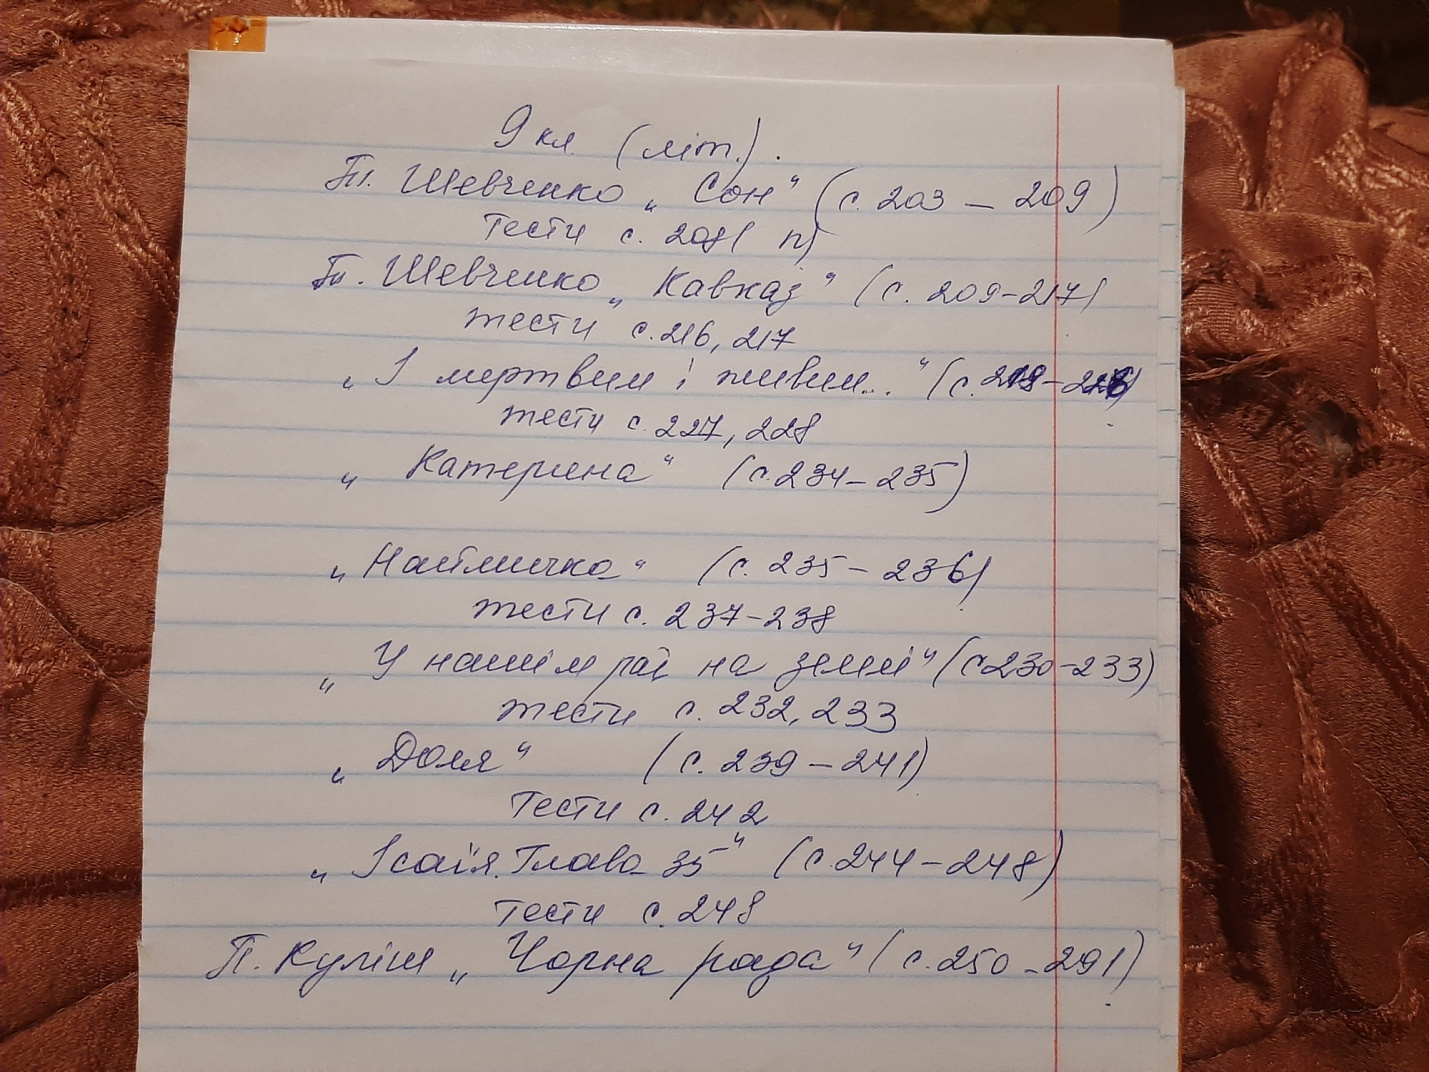 9 кл. (літ.).
Т. Шевченко „Сон" (с. 203 – 209)
Тести с. 208( п)
Т. Шевченко „Кавказ" (с. 209-217)
тести с. 216, 217
„І мертвим і живим..." (с. 218-226)
тести с. 227, 228
„Катерина" (с. 234-235)
„Наймичка" (с. 235-236)
тести с. 237-238
„У нашім раї на землі" (с 230-233)
тести с. 232, 233
„Доля" (с. 239 – 241)
Тести с. 242
„Ісаія. Глава 35" (с. 244-248)
тести с. 248
П. Куліш „Чорна рада" (с. 250 – 291)